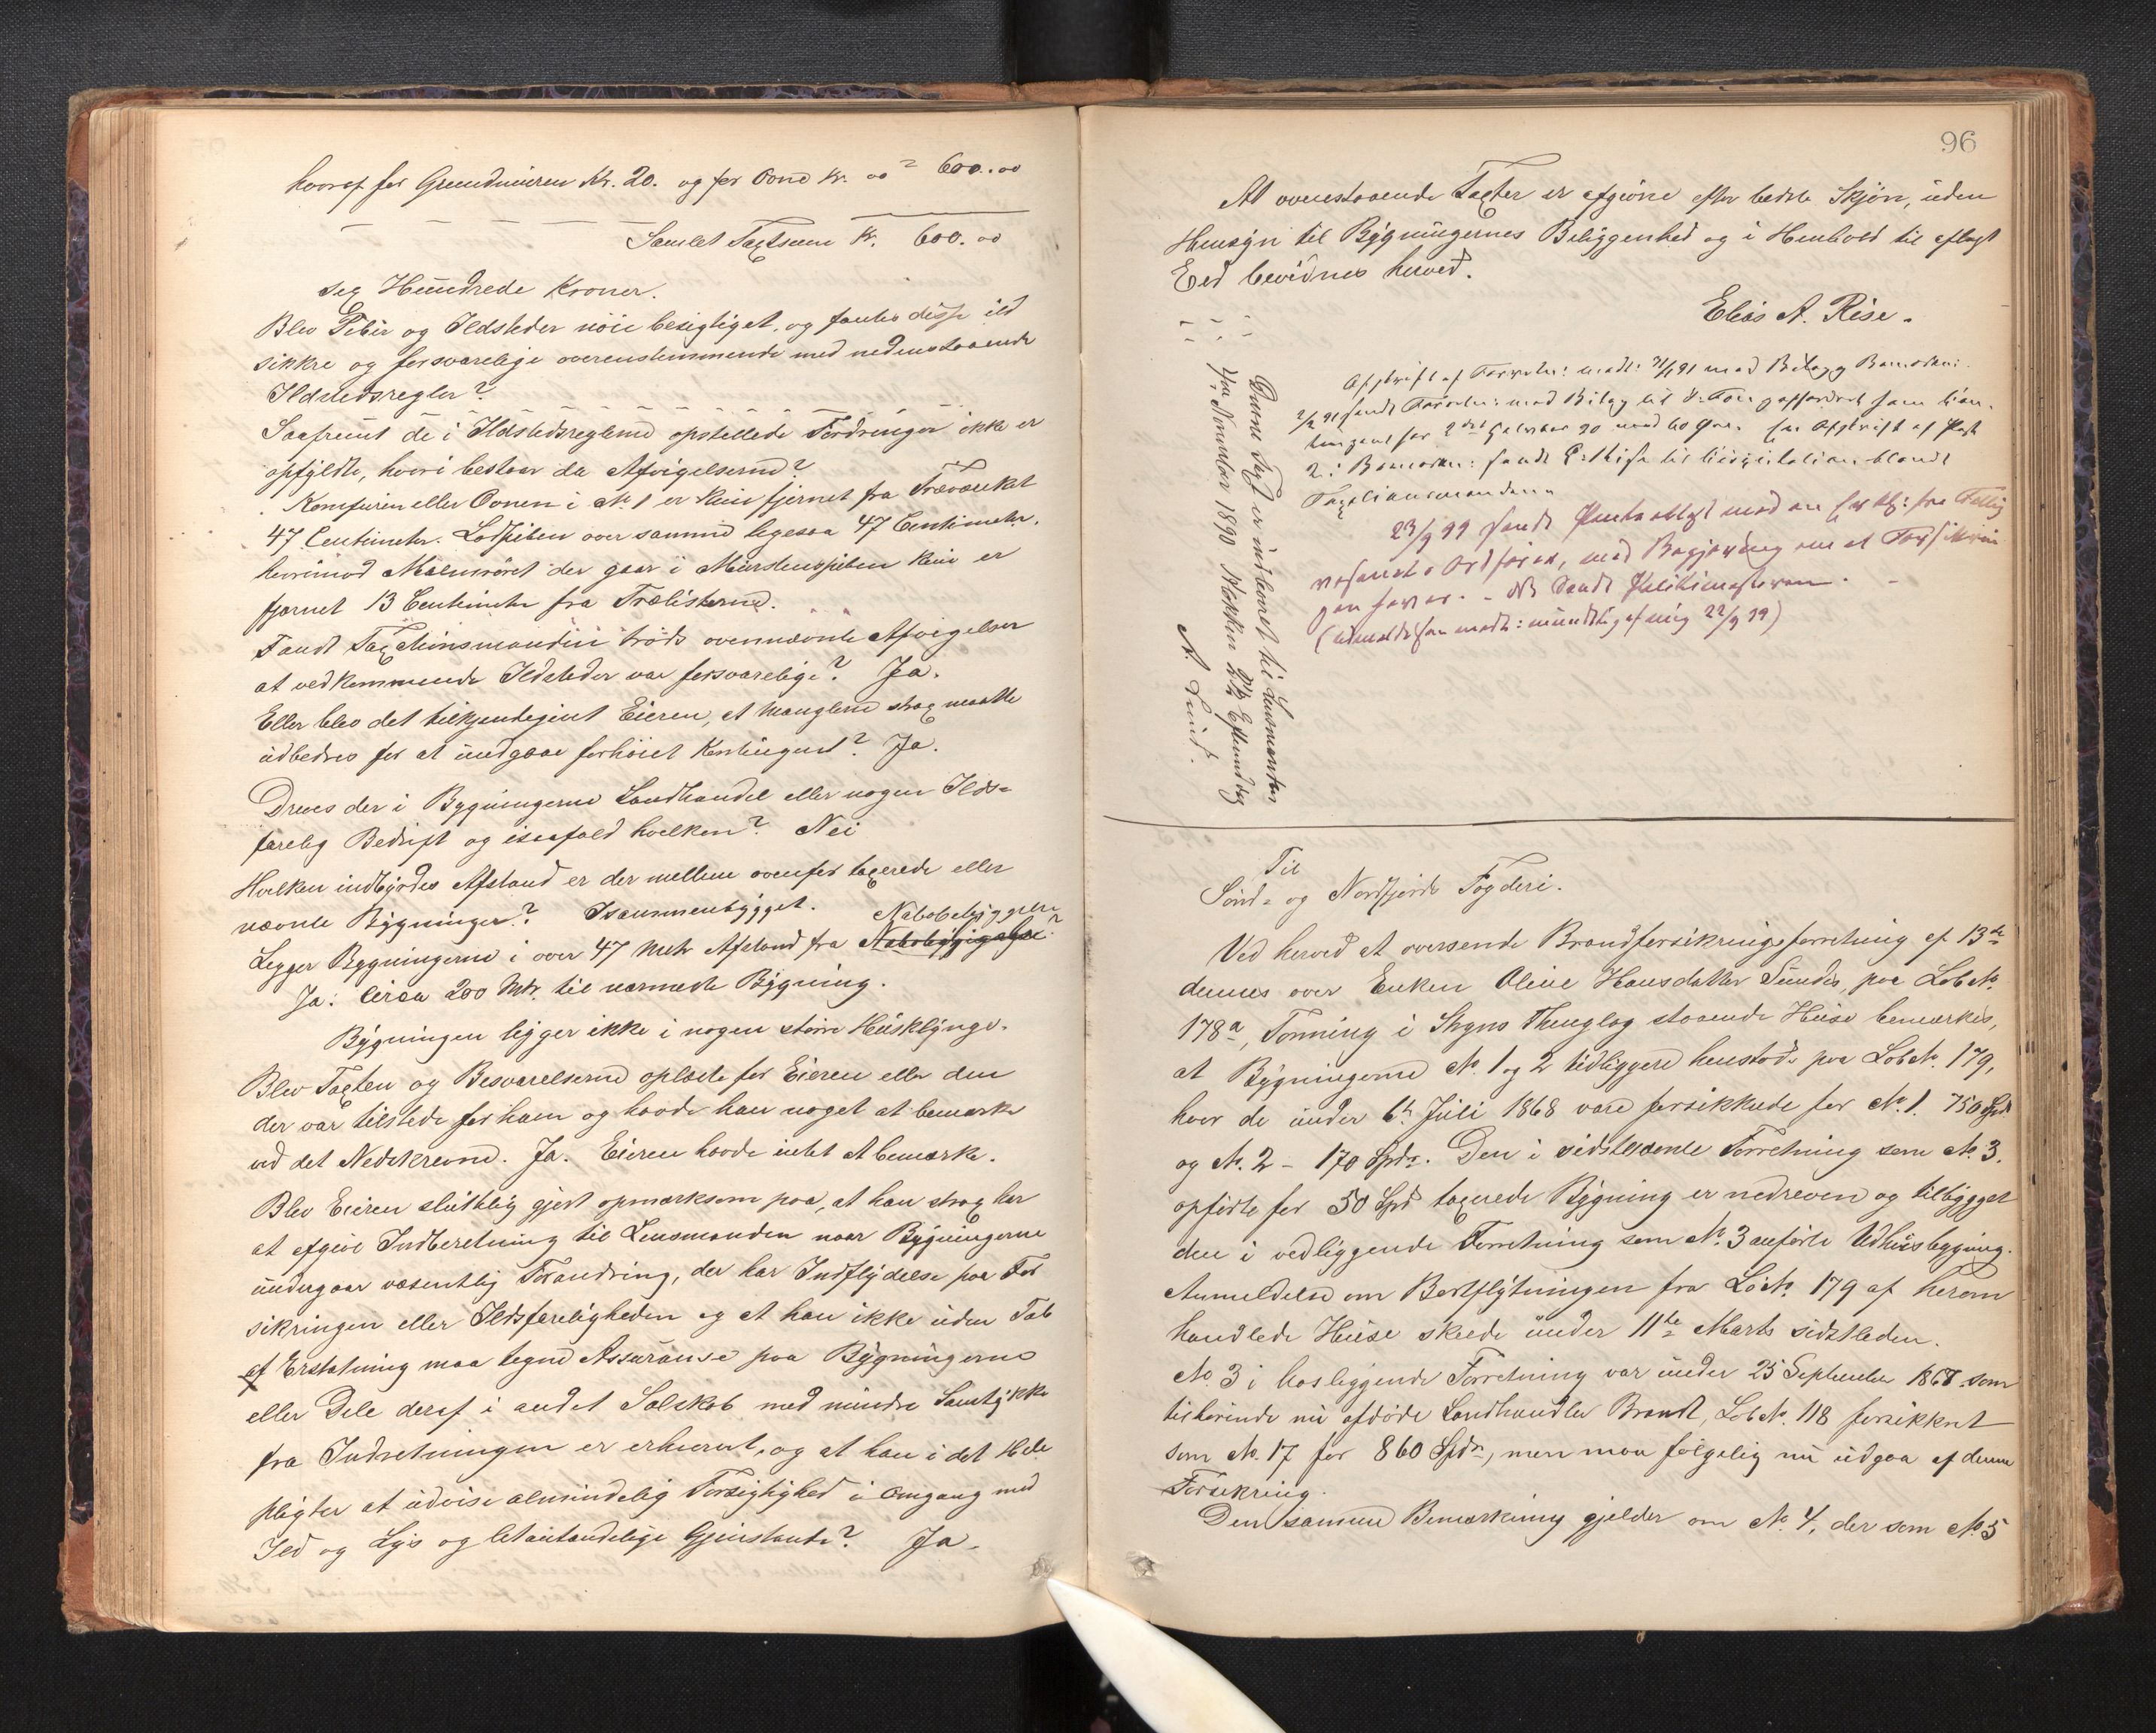 hvoraf for Grundmuren Kr. 20. og for Ovne Kr. oo = 600.00
Samlet Taxtsum Kr. 600.00
Sex Hundrede Kroner.
Blev Piber og Ildsteder nöie besigtiget, og fantes disse ild
sikkre og forsvarelige overensstemmende med nedenstaaende
Ildstedsregler?
Saafremt de i Ildstedsreglerne opstillede Fordringer ikke er
opfyldte, hvori bestaar da Afvigelserne?
Komfuren eller Ovnen i No 1 er kun fjernet fra Træværket
47 Centimeter. Lodpiben over samme ligesaa 47 Centimeter,
hvorimod Malmröret der gaar i Murstenspiben kun er
fjernet 13 Centimeter fra Trælisterne.
Fandt Taxtionsmanden tröds ovennævnte Afvigelser
at vedkommende Ildsteder var forsvarelige? Ja.
Eller blev det tilkjendegivet Eieren, at Manglerne strax maatte
udbedres for at undgaae forhöiet Kontingent? Ja.
Dreves der i Bygningerne Landhandel eller nogen Ilds-
farlig Bedrift og isaafald hvilken? Nei
Hvilken indbyrdes Afstand er der mellem ovenfor taxerede eller
nævnte Bygninger? Isammenbygget.
Nabobebyggelse
Ligger Bygningerne i over 47 Meter Afstand fra Nabobebyggelse?
Ja: circa 200 Mtr. til nærmeste Bygning.
Bygningen ligger ikke i nogen större Husklynge.
Blev Taxten og Besvarelserne oplæste for Eieren eller den
der var tilstede for ham og havde han noget at bemærke
ved det Nedskrevne. Ja. Eieren havde intet At bemærke.
Blev Eieren sluttelig gjort opmærksom paa, at han strax har
at afgive Indberetning til Lensmanden naar Bygningerne
undergaar væsentlig Forandring, der har Indflydelse paa For
sikringen eller Ildsfarligheden og at han ikke uden Tab
af Erstatning maa tegne Assuranse paa Bygningerne
eller Dele deraf i andet Selskab med mindre Samtykke
fra Indretningen er erhvervet, og at han i det Hele
pligter at udvise almindelig Forsigtighed i Omgang med
Ild og Lys og letantændelige Gjenstande? Ja.
96
At ovenstaaende Taxter er afgivne efter bedste Skjön, uden
Hensyn til Bygningernes Beliggenhed og i Henhold til aflagt
Eed bevidnes herved.
Elias A. Rise.
Denne Taxt er indleveret til Lensmanden
November 1890 Klokken Eftermiddag
A. Lund.
Afskrift af Forretn: med Bilag
sendt Forretn: med Bilag til
for Afskrift af
2:
Taxtionsmændene
23/9 99 sendt
med Begjæring om at
(udmeldt mundtlig af mig 22/9 99)
Til
Sönd- og Nordfjords Fogderi.
Ved herved at oversende Brandforsikringsforretning af 13de
dennes over Enken Oline Hansdatter Sundes, paa Lob No
178a, Tonning i Stryns Thinglag staaende Huse bemærkes,
at Bygningerne No. 1 og 2 tidliggere henstod paa Lob No. 179,
hvor de under 6te Juli 1868 vare forsikkrede for No. 1. 750 Spd.
og No. 2 - 170 Spdr. Den i sidstnævnte Forretning som No. 3.
opförte for 50 Spd taxerede Bygning er nedreven og tilbygget
den i vedliggende Forretning som No. 3 anförte Udhusbygning.
Anmeldelse om Bortflytningen fra Lö No. 179 af herom
handlede Huse skeede under 11te Marts sidstleden.
No. 3 i hosliggende Forretning var under 25 September 1868 som
tilhörende nu afdöde Landhandler Brandt, Lob No. 118 forsikkret
som No. 17 for 860 Spdr, men maa fölgelig nu udgaa af denne
Forsikring.
Den samme Bemærkning gjelder om No. 4, der som No 5